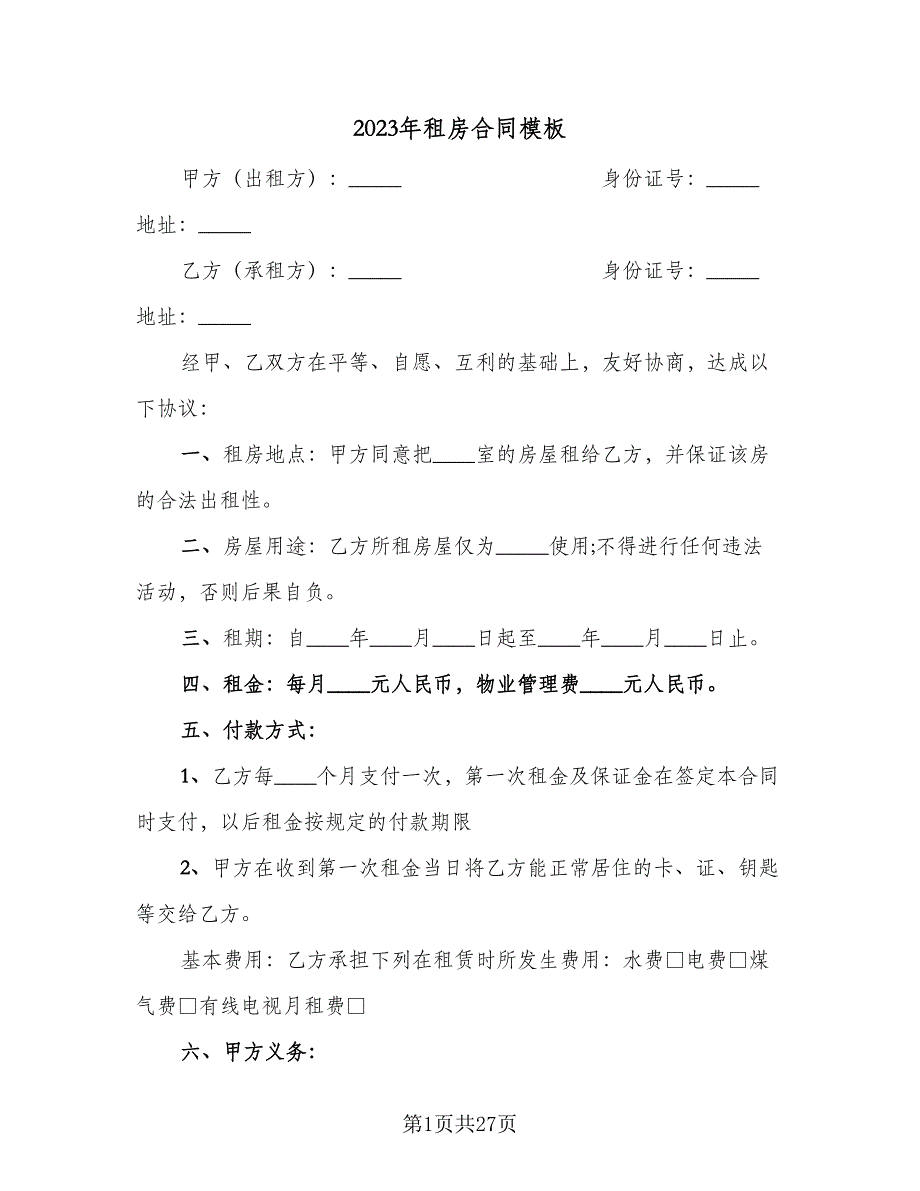 2023年租房合同模板
甲方（出租方）：_____ 身份证号：_____
地址：_____
乙方（承租方）：_____ 身份证号：_____
地址：_____
经甲、乙双方在平等、自愿、互利的基础上，友好协商，达成以
下协议：
一、租房地点：甲方同意把____室的房屋租给乙方，并保证该房
的合法出租性。
二、房屋用途：乙方所租房屋仅为_____使用;不得进行任何违法
活动，否则后果自负。
三、租期：自____年____月____日起至____年____月____日止。
四、租金：每月____元人民币，物业管理费____元人民币。
五、付款方式：
1、乙方每____个月支付一次，第一次租金及保证金在签定本合同
时支付，以后租金按规定的付款期限
2、甲方在收到第一次租金当日将乙方能正常居住的卡、证、钥匙
等交给乙方。
基本费用：乙方承担下列在租赁时所发生费用：水费□电费□煤
气费□有线电视月租费□
六、甲方义务：
第1页共27页